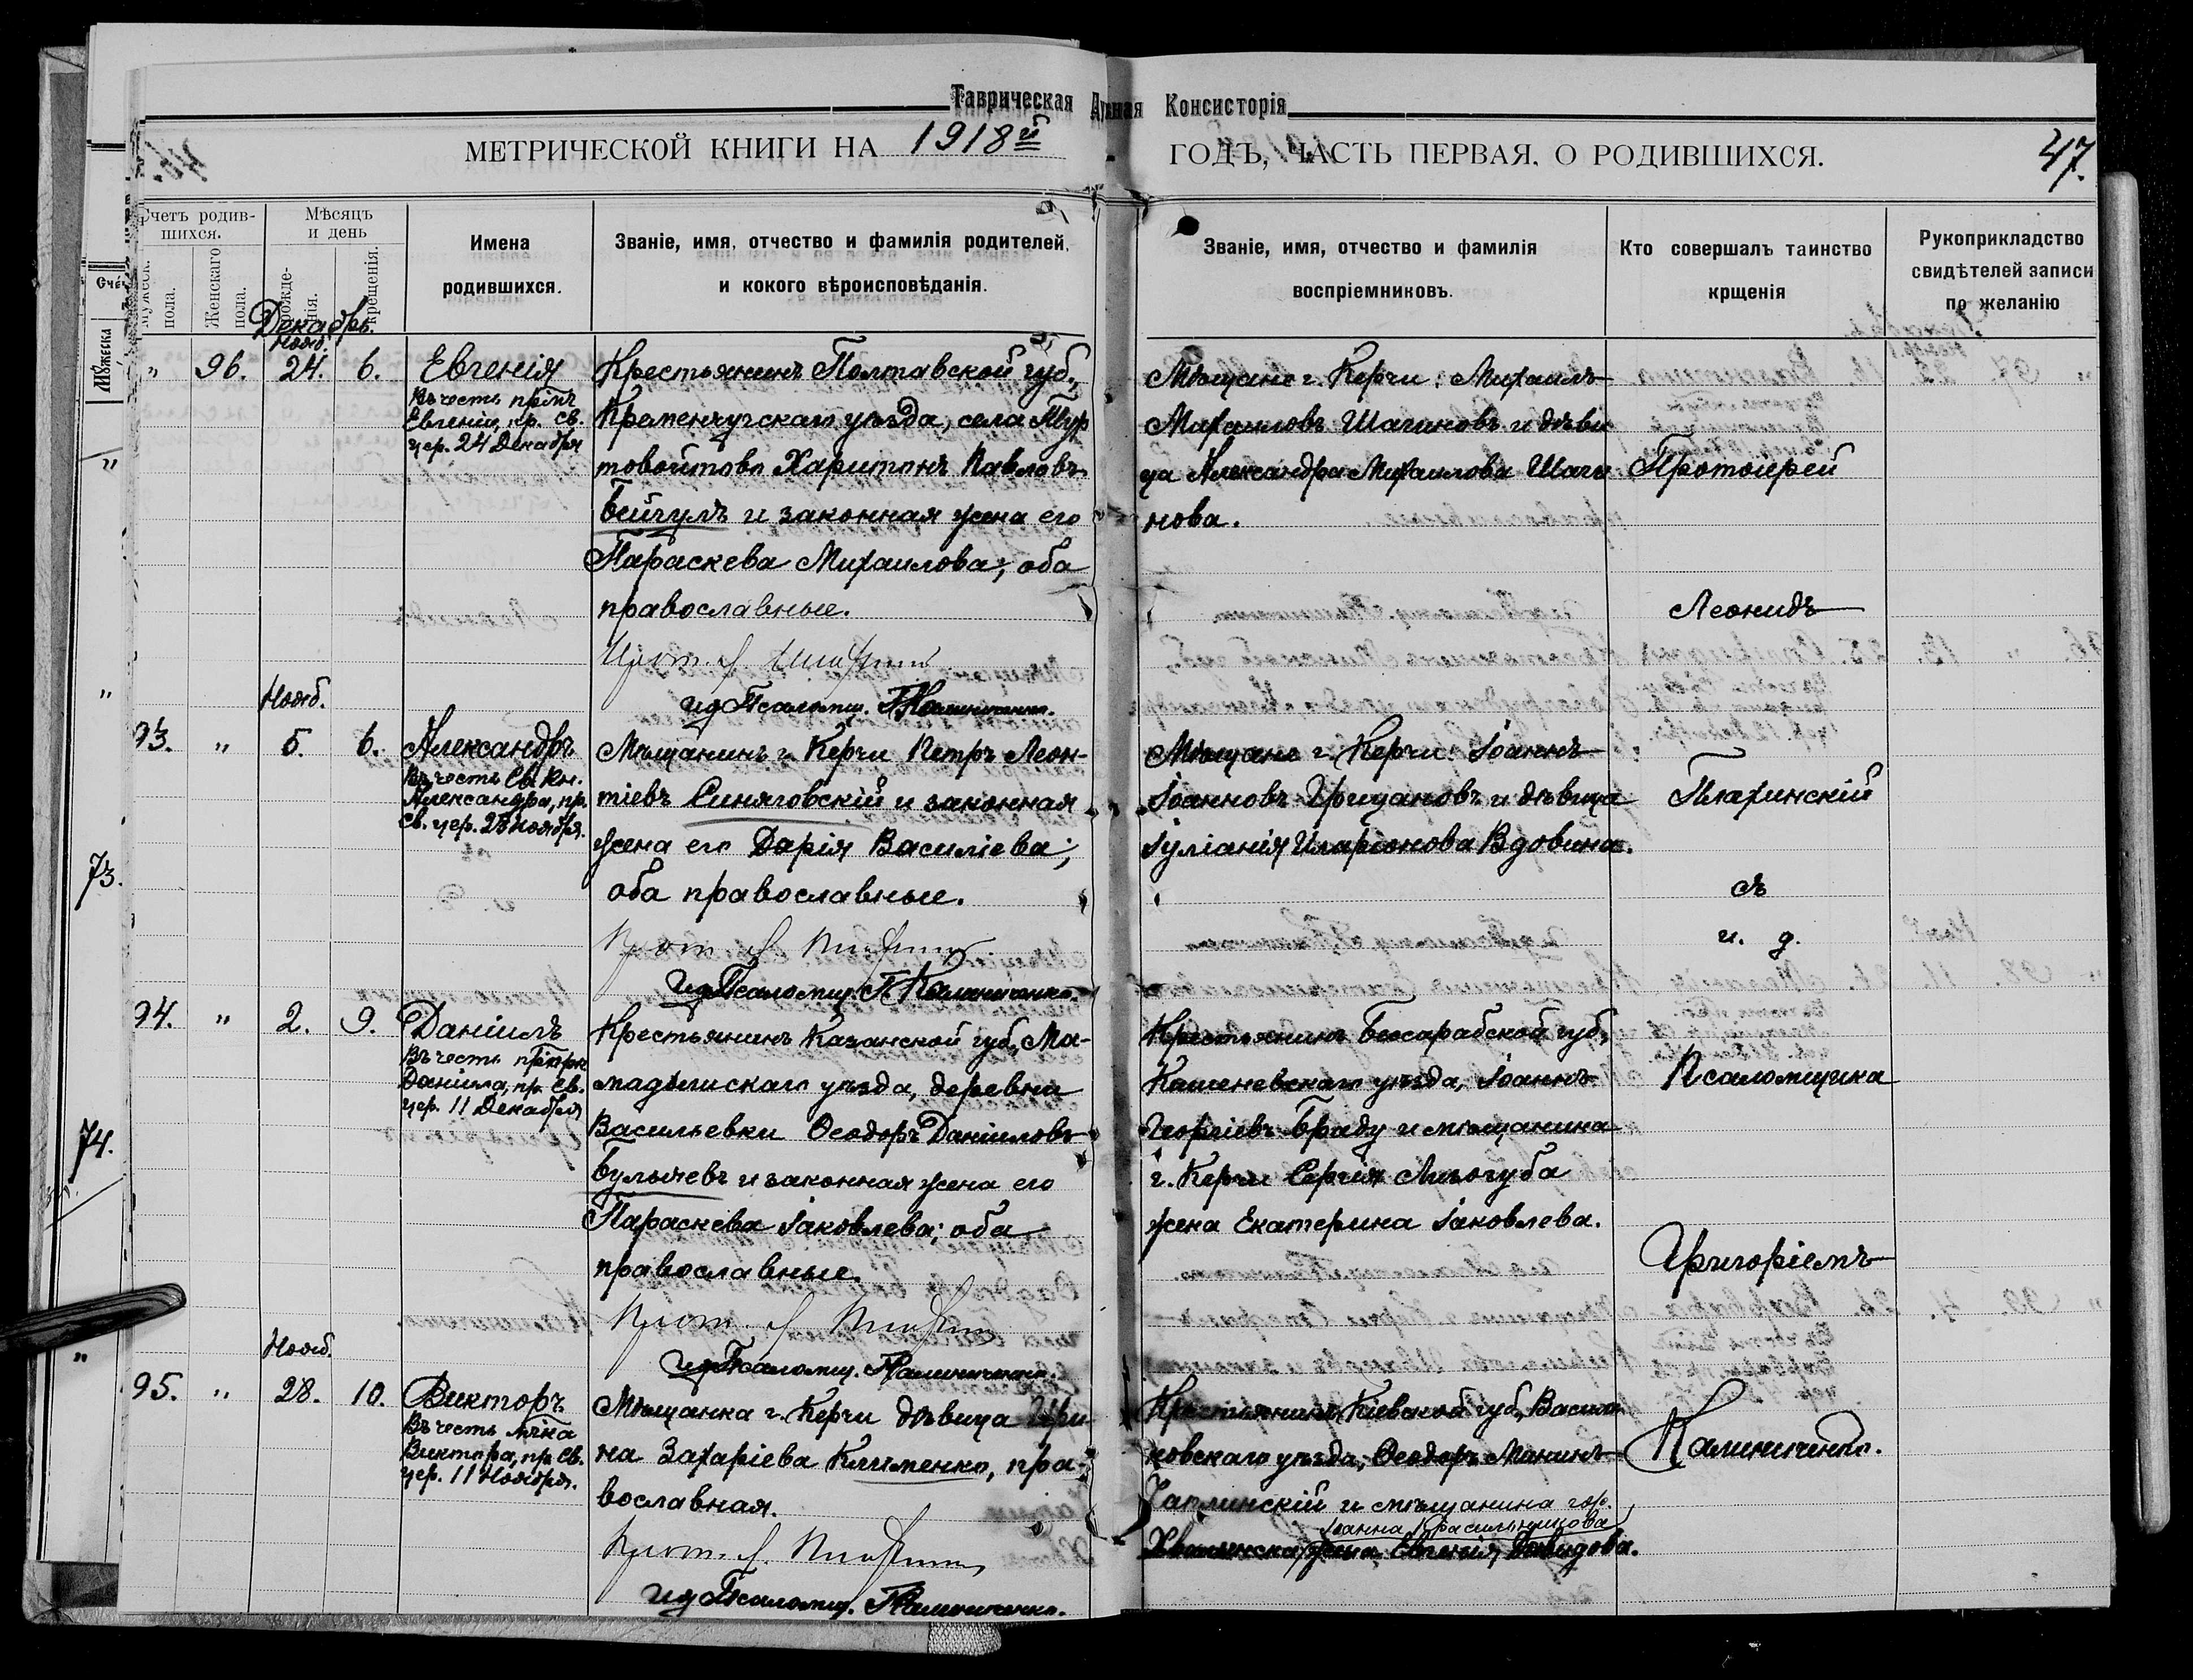 Таврическая Духовная Консисторія
МЕТРИЧЕСКОЙ КНИГИ НА 1918й ГОДЪ, ЧАСТЬ ПЕРВАЯ, О РОДИВШИХСЯ.
47.
Счетъ родив-
шихся.
Мужеск. пола.
Женскаго пола.
Мѣсяцъ
и день
рожде-
нія.
крещенія.
Имена
родившихся.
Званіе, имя, отчество и фамилія родителей,
и кокого вѣроисповѣданія.
Званіе, имя, отчество и фамилія
воспріемниковъ.
Кто совершалъ таинство
крщенія
Рукоприкладство
свидѣтелей записи
по желанію
Декабрь.
Нояб.
" 96. 24. 6.
Евгенія
Въ честь прмч
Евгеніи, пр. св.
цер. 24 Декабря
Крестьянинъ Полтавской губ.,
Кременчугскаго уѣзда, села
Харитонъ Павловъ
Бейгулъ и законная жена его
Параскева Михаилова; оба
православные.
Прот. Л.
ид Псаломщ. Калиниченко.
Мѣщане г. Керчи: Михаилъ
Михаиловъ Шагиновъ и дѣви
ца Александра Михаилова Шаги
нова.
Нояб.
93. " 5. 6.
Александръ
Въ честь Св. Кн.
Александра, пр.
св. цер. 23 Ноября.
Мѣщанинъ г. Керчи Петръ Леон-
тіевъ Синяговскій и законная
жена его Дарія Василіева;
оба православные.
Прот. Л.
ид Псаломщ. П. Калиниченко.
Мѣщане г. Керчи: Іоаннъ
Іоанновъ Грицановъ и дѣвица
Іуліанія Иларіонова Вдовина.
94. " 2. 9.
Даніилъ
Въ честь
Даніила, пр. св.
цер. 11 Декабря
Крестьянинъ Казанской губ., Ма-
мадышскаго уѣзда, деревни
Васильевки Ѳеодоръ Даніиловъ
Булычевъ и законная жена его
Параскева Іаковлева; оба
православные.
Прот. Л.
ид Псаломщ. Калиниченко.
Крестьянинъ Бессарабской губ.,
Кишеневскаго уѣзда, Іоаннъ
Георгіевъ Браду и мѣщанина
г. Керчи Сергія Лизогуба
жена Екатерина Іаковлева.
Нояб.
95. " 28. 10.
Викторъ
Въ честь мчна
Виктора, пр. св.
цер. 11 Ноября.
Мѣщанка г. Керчи дѣвица Ири
на Захаріева Клименко, пра-
вославная.
Прот. Л.
ид Псаломщ. Калиниченко.
Крестьянинъ Кіевской губ., Васили
ковскаго уѣзда, Ѳеодоръ
Чаплинскій и мѣщанина гор.
Іоанна Красильникова
Хвалынска жена Евгенія Давидова.
Протоіерей
Леонидъ
съ
и. д.
Псаломщика
Григоріемъ
Калиниченко.
73.
74.